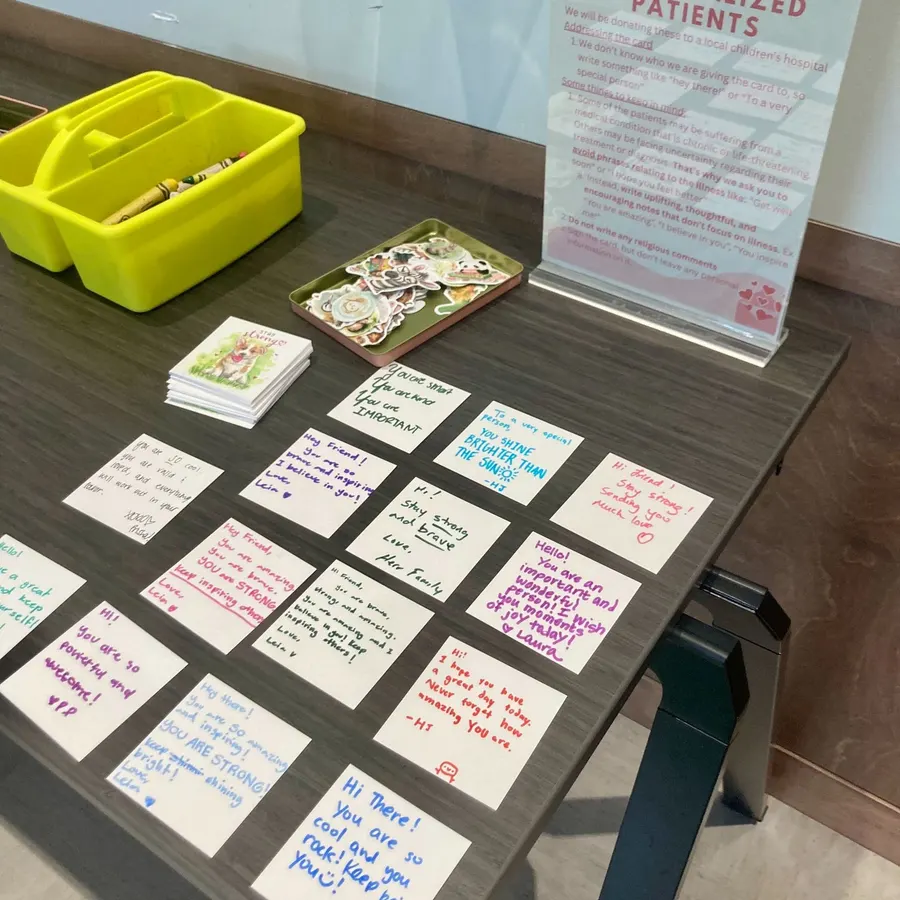 PATIENTS
We will be donating these to a local children's hospital
Addressing the card
1. We don't know who we are giving the card to, so
write something like "hey there!" or "To a very
special person"
Some things to keep in mind:
1. Some of the patients may be suffering from a
medical condition that is chronic or life-threatening.
Others may be facing uncertainty regarding their
treatment or diagnosis. That's why we ask you to
avoid phrases relating to the illness like: "Get well
soon" or "I hope you feel better"
a. Instead, write uplifting, thoughtful, and
encouraging notes that don't focus on illness. Ex
"You are amazing", "I believe in you", "You inspire
me"
2. Do not write any religious comments
sign the card, but don't leave any personal
information
STAY
You are smart
You are kind
You are
IMPORTANT
To a very special
person,
YOU SHINE
BRIGHTER THAN
THE SUN
-HJ
Hi friend!
Stay strong!
Sending you
much love
Hey Friend!
You are so
brave and inspiring
I believe in you!
Love,
Lein
you are SO cool
you are valid &
loved, and everything
will work out in your
favor.
XOXO
Hi!
Stay strong
and brave
Love,
Herr Family
Hello!
You are an
important and
wonderful
person! I wish
you moments
of joy today!
Laura
Hey Friend,
You are amazing
You are brave.
YOU ARE STRONG
keep inspiring others!
Love,
Lein
Hi Friend,
You are brave
strong and amazing.
You are amazing and I
believe in you! Keep
inspiring others!
Love,
Lein
ello!
e a great
d keep
urself!
Hi!
You are so
powerful and
awesome!
PP
Hi!
I hope you have
a great day today.
Never forget how
amazing you are.
-HJ
Hey there!
You are so amazing
and inspiring!
YOU ARE STRONG!
keep shinni shining
bright!
Love,
Lein
Hi There!
You are so
cool and you
rock! Keep
you!